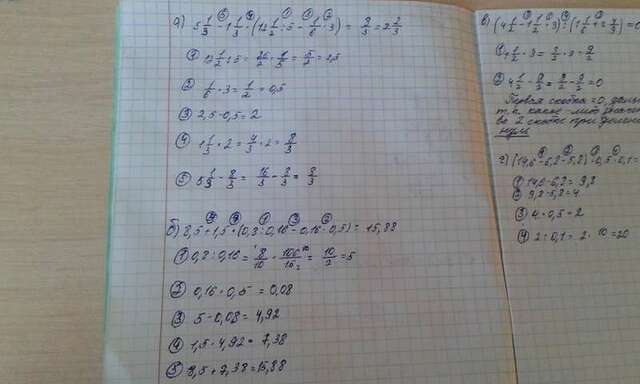 а) 5 1/3 - 1 1/3 · (12 1/2 : 5 - 1/6 · 3) = 8/3 = 2 2/3
① 12 1/2 : 5 = 25/2 · 1/5 = 5/2 = 2,5
② 1/6 · 3 = 1/2 = 0,5
③ 2,5 - 0,5 = 2
④ 1 1/3 · 2 = 4/3 · 2 = 8/3
⑤ 5 1/3 - 8/3 = 16/3 - 8/3 = 8/3
б) 8,5 + 1,5 · (0,8 : 0,16 - 0,16 · 0,5) = 15,88
① 0,8 : 0,16 = 8/10 · 100/16 = 10/2 = 5
② 0,16 · 0,5 = 0,08
③ 5 - 0,08 = 4,92
④ 1,5 · 4,92 = 7,38
⑤ 8,5 + 7,38 = 15,88
в) (4 1/2 - 1 1/2 · 3) :
① 1 1/2 · 3 = 3/2 · 3 = 9/2
② 4 1/2 - 9/2 = 9/2 - 9/2 = 0
Первая скобка = 0, даль
т.к. какое-либо
во 2 скобке при делен
нулю
г) (14,6 - 5,2) · 0,5 : 0,1 =
③ 4 · 0,5 = 2
④ 2 : 0,1 = 2 · 10 = 20